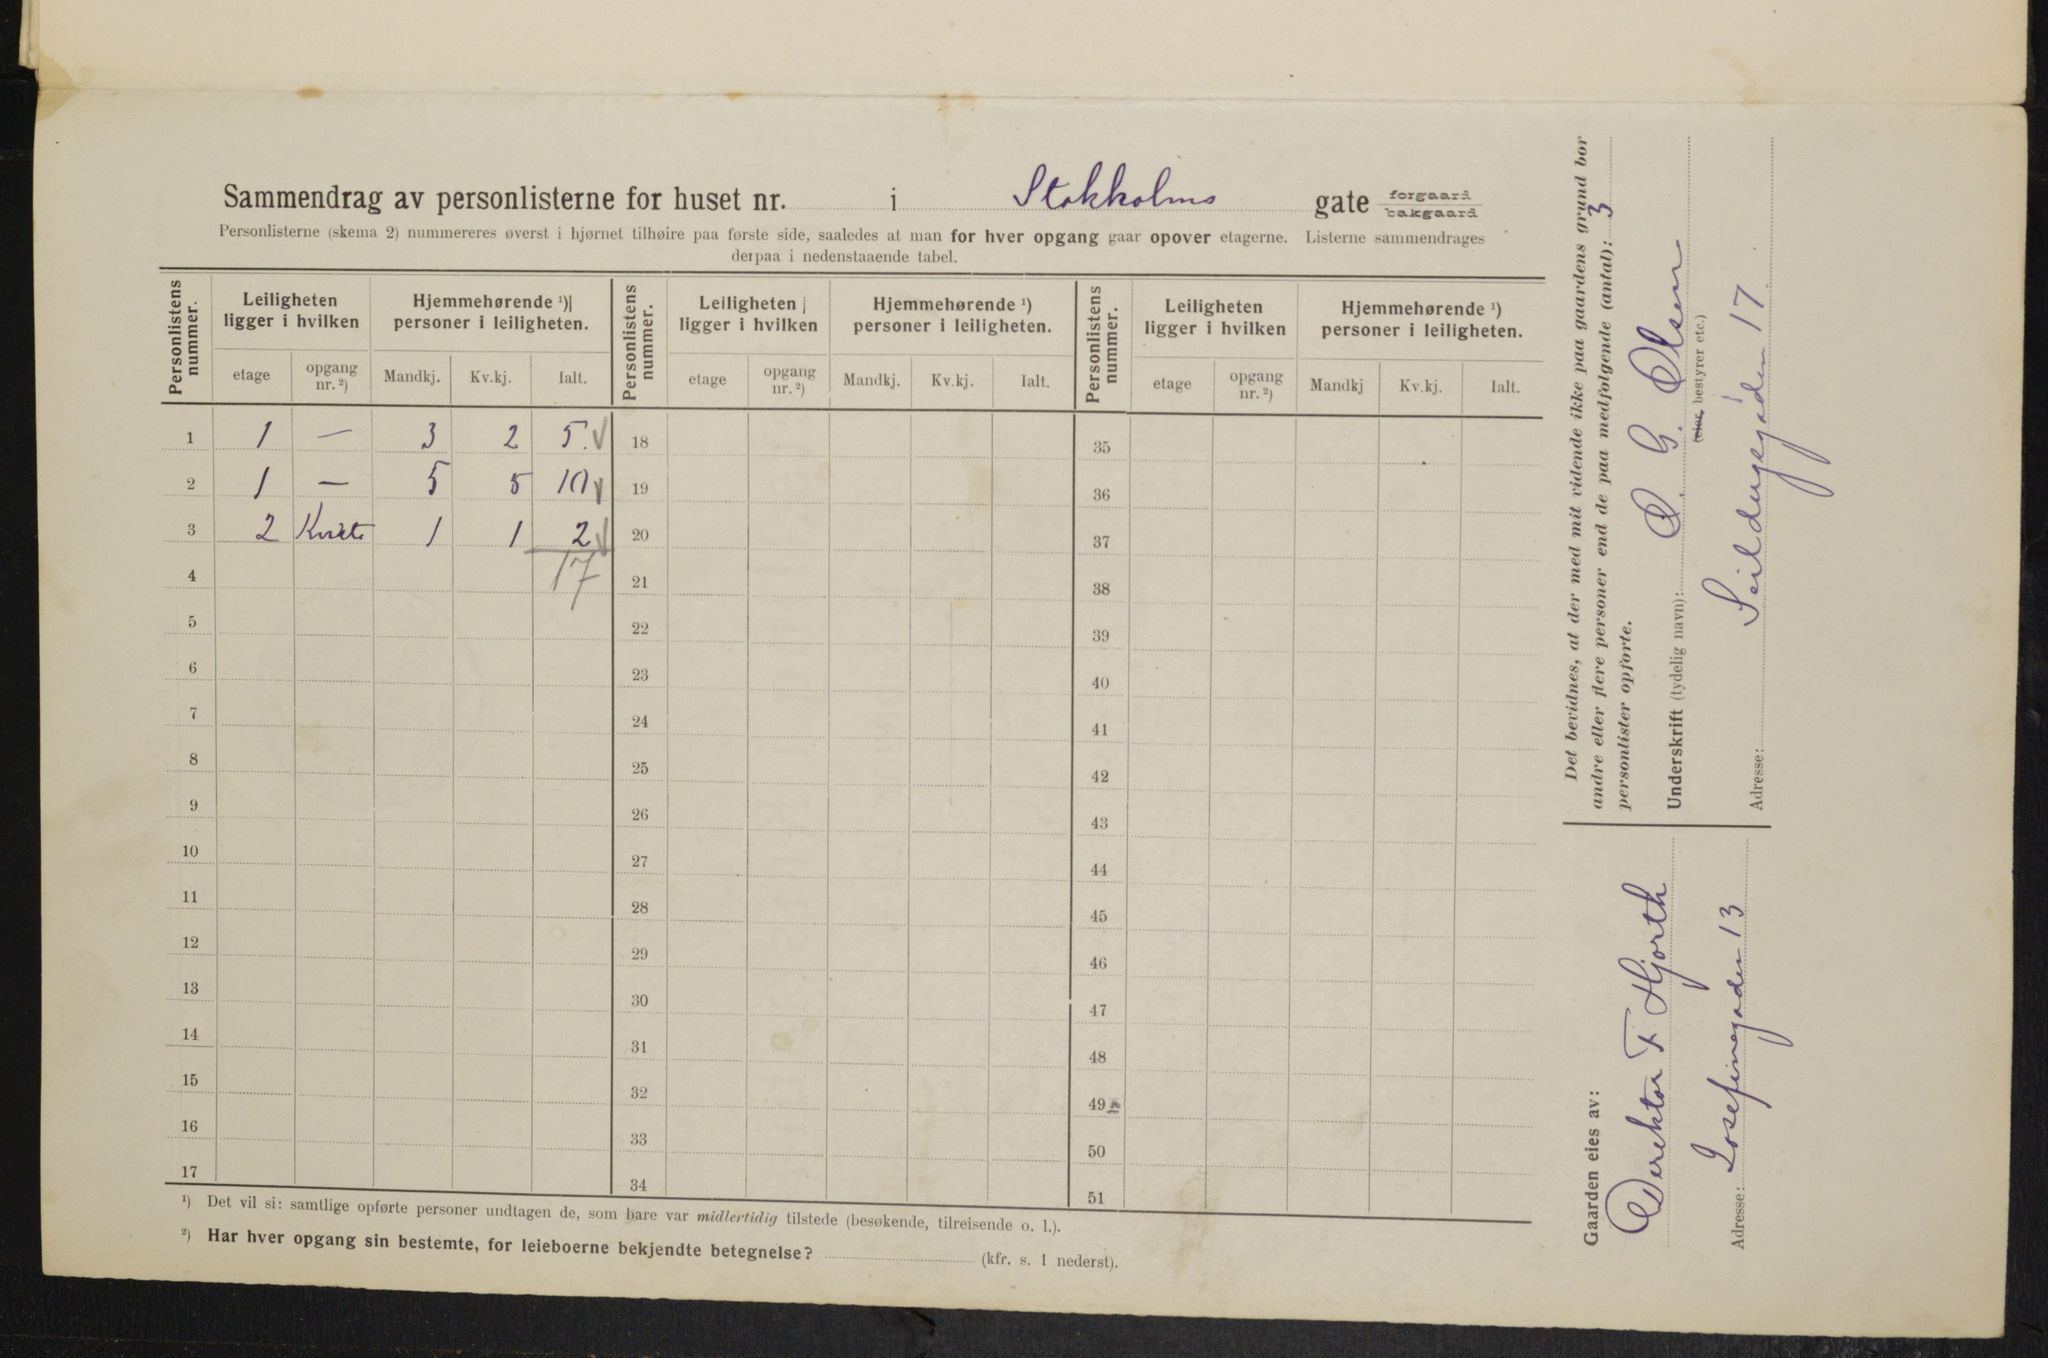 Sammendrag av personlisterne for huset nr. i Stokkolms gate forgaard bakgaard
Personlisterne (skema 2) nummereres øverst i hjørnet tilhøire paa første side, saaledes at man for hver opgang gaar opover etagerne. Listerne sammendrages
derpaa i nedenstaaende tabel.
Personlistens nummer. Leiligheten ligger i hvilken Hjemmehørende ¹) personer i leiligheten. Personlistens nummer. Leiligheten ligger i hvilken Hjemmehørende ¹) personer i leiligheten. Personlistens nummer. Leiligheten ligger i hvilken Hjemmehørende ¹) personer i leiligheten.
etage opgang nr. ²) Mandkj. Kv.kj. Ialt. etage opgang nr. ²) Mandkj. Kv.kj. Ialt. etage opgang nr. ²) Mandkj Kv.kj. Ialt.
1 1 — 3 2 5. 18 35
2 1 — 5 5 10 19 36
3 2 1 1 2 20 37
4 17 21 38
5 22 39
6 23 40
7 24 41
8 25 42
9 26 43
10 27 44
11 28 45
12 29 46
13 30 47
14 31 48
15 32 49
16 33 50
17 34 51
¹) Det vil si: samtlige opførte personer undtagen de, som bare var midlertidig tilstede (besøkende, tilreisende o. l.).
²) Har hver opgang sin bestemte, for leieboerne bekjendte betegnelse? (kfr. s. 1 nederst).
Det bevidnes, at der med mit vidende ikke paa gaardens grund bor
andre eller flere personer end de paa medfølgende (antal): 3
personlister opførte.
Underskrift (tydelig navn): O. G. Olsen
(eier, bestyrer etc.)
Adresse: Seildugsgaden 17.
Gaarden eies av:
Direktør F. Hjorth
Adresse: Josefinegaden 13